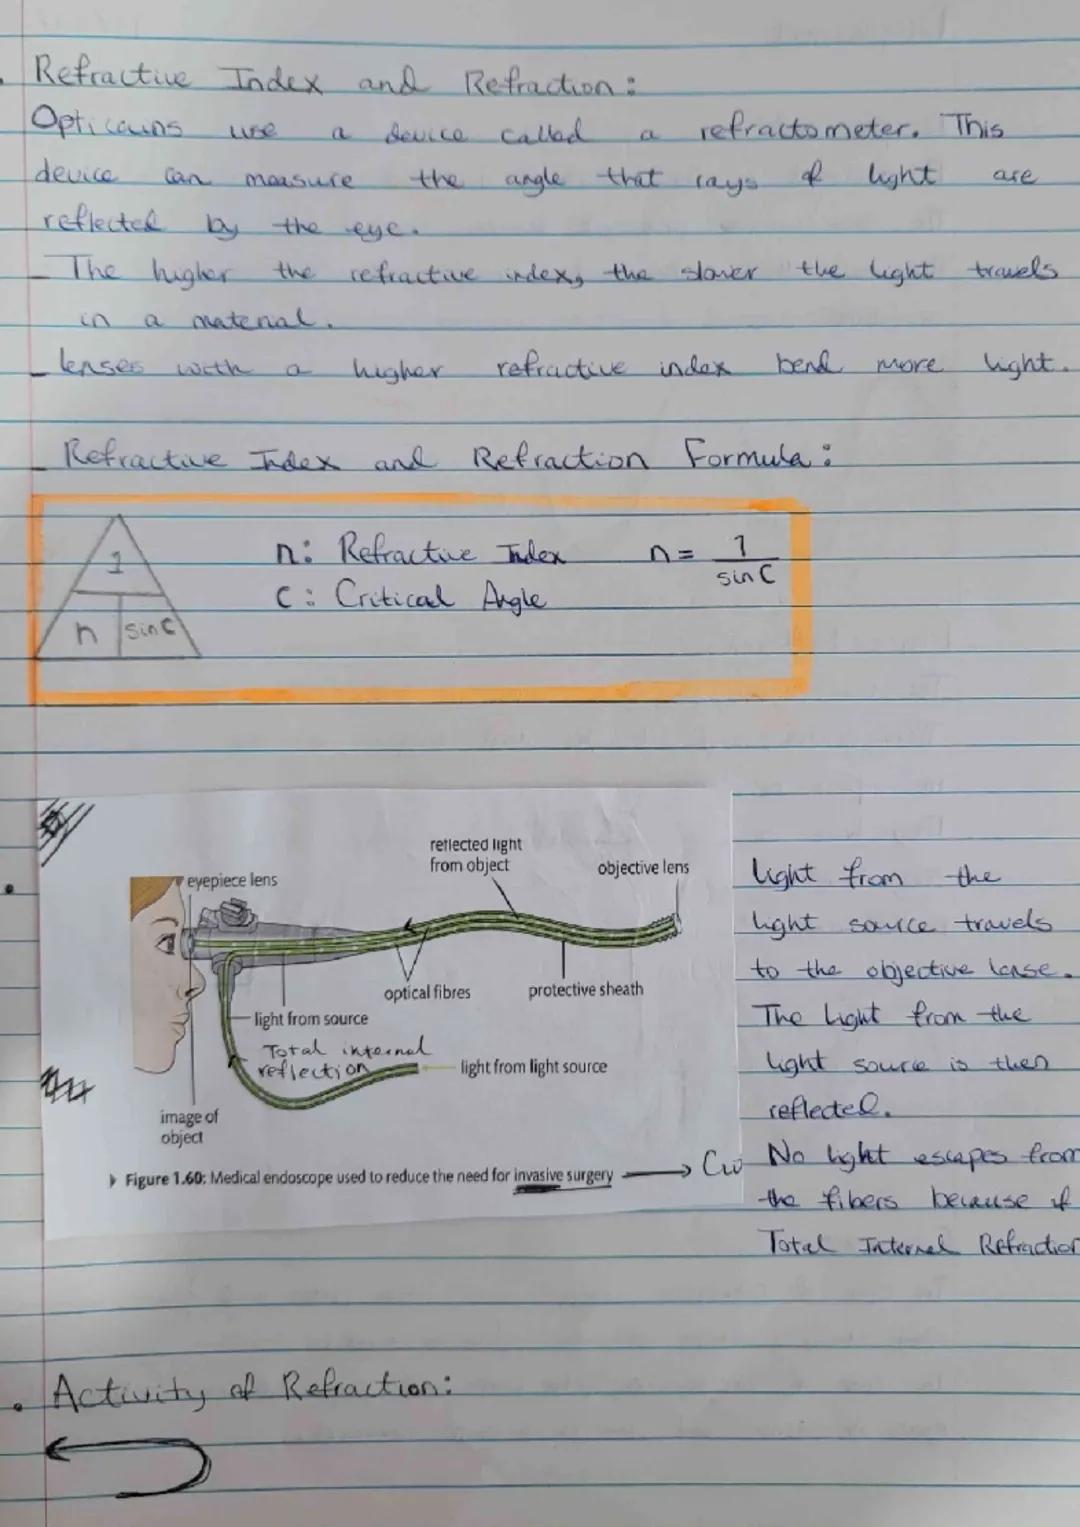 Refractive Index and Refraction:
Opticains use a device called a refractometer. This
device can measure the angle that rays of light are
reflected by the eye.
- The higher the refractive index, the slower the light travels
in a material.
- lenses with a higher refractive index bend more light.
- Refractive Index and Refraction Formula:
1
n sin C
n: Refractive Index n = 1 / sin C
C: Critical Angle
reflected light
from object
objective lens
eyepiece lens
optical fibres
protective sheath
light from source
Total internal
reflection
light from light source
image of
object
Figure 1.60: Medical endoscope used to reduce the need for invasive surgery → Cu
light from the
light source travels
to the objective lense.
The light from the
light source is then
reflected.
No light escapes from
the fibers because of
Total Internal Refraction
• Activity of Refraction: